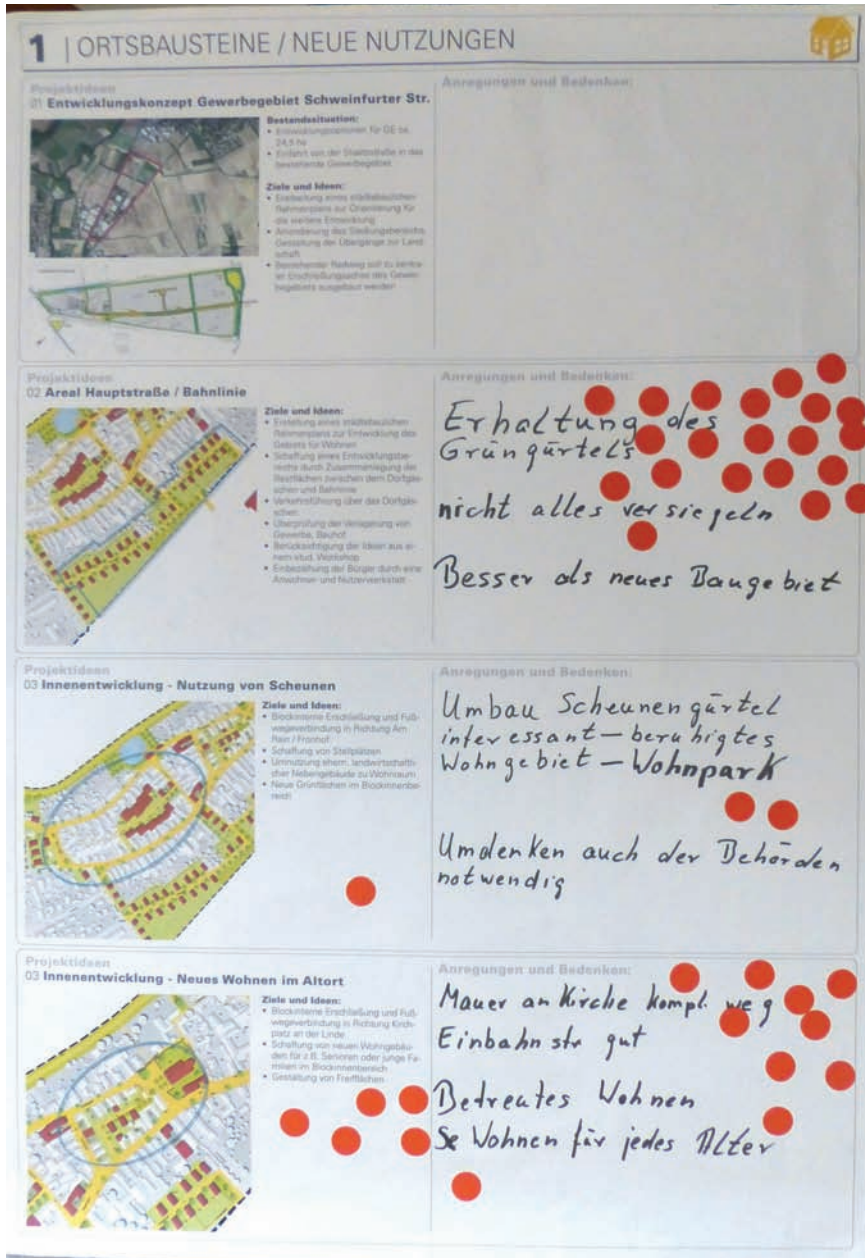 1 | ORTSBAUSTEINE / NEUE NUTZUNGEN
Projektideen
01 Entwicklungskonzept Gewerbegebiet Schweinfurter Str.
Bestandssituation:
• Entwicklungsoptionen für GE ca.
24,5 ha
• Einfahrt von der Staatsstraße in das
bestehende Gewerbegebiet
Ziele und Ideen:
• Erarbeitung eines städtebaulichen
Rahmenplans zur Orientierung für
die weitere Entwicklung
• Arrondierung des Siedlungsbereichs,
Gestaltung der Übergänge zur Land
schaft
• Bestehender Radweg soll zu
Erschließungsachse des Gewer-
begebiets ausgebaut werden
Anregungen und Bedenken:
Projektideen
02 Areal Hauptstraße / Bahnlinie
Ziele und Ideen:
• Erstellung eines städtebaulichen
Rahmenplans zur Entwicklung des
Gebiets für Wohnen
• Schaffung eines Entwicklungsbe-
reichs durch Zusammenlegung der
Restflächen zwischen dem Dorfgäs-
schen und Bahnlinie
• Verkehrsführung über das Dorfgäs-
schen
• Überprüfung der Verlagerung von
Gewerbe, Bauhof
• Berücksichtigung der Ideen aus ei-
nem stud. Workshop
• Einbeziehung der Bürger durch eine
Anwohner- und Nutzerwerkstatt
Anregungen und Bedenken:
Erhaltung des
Grüngürtels
nicht alles versiegeln
Besser als neues Baugebiet
Projektideen
03 Innenentwicklung - Nutzung von Scheunen
Ziele und Ideen:
• Blockinterne Erschließung und Fuß-
wegeverbindung in Richtung Am
Rain / Fronhof
• Schaffung von Stellplätzen
• Umnutzung ehem. landwirtschaftli-
cher Nebengebäude zu Wohnraum
• Neue Grünflächen im Blockinnenbe-
reich
Anregungen und Bedenken:
Umbau Scheunengürtel
interessant — beruhigtes
Wohngebiet — Wohnpark
Umdenken auch der Behörden
notwendig
Projektideen
03 Innenentwicklung - Neues Wohnen im Altort
Ziele und Ideen:
• Blockinterne Erschließung und Fuß-
wegeverbindung in Richtung Kirch-
platz an der Linde
• Schaffung von neuen Wohngebäu-
den für z.B. Senioren oder junge Fa-
milien im Blockinnenbereich
• Gestaltung von Freiflächen
Anregungen und Bedenken:
Mauer an Kirche kompl. weg
Einbahnstr gut
Betreutes Wohnen
Se Wohnen für jedes Alter